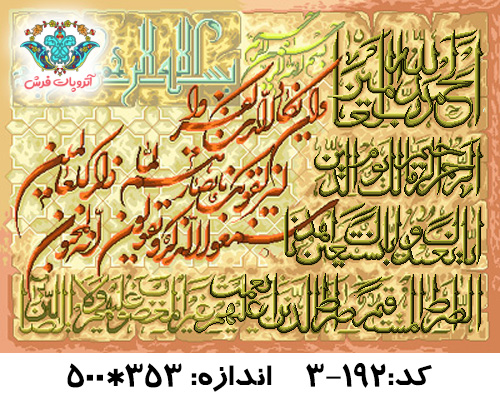 آتروپات فرش
بسم الله الرحمن الرحیم
الحمد لله رب العالمین
الرحمن الرحیم مالک یوم الدین
ایاک نعبد و ایاک نستعین اهدنا
الصراط المستقیم صراط الذین انعمت علیهم غیر المغضوب علیهم و لا الضالین
وان یکاد الذین کفروا
لیزلقونک بابصارهم لما
سمعوا الذکر و یقولون انه لمجنون
الا ذکر للعالمین
کد:۱۹۲-۳ اندازه: ۳۵۳*۵۰۰